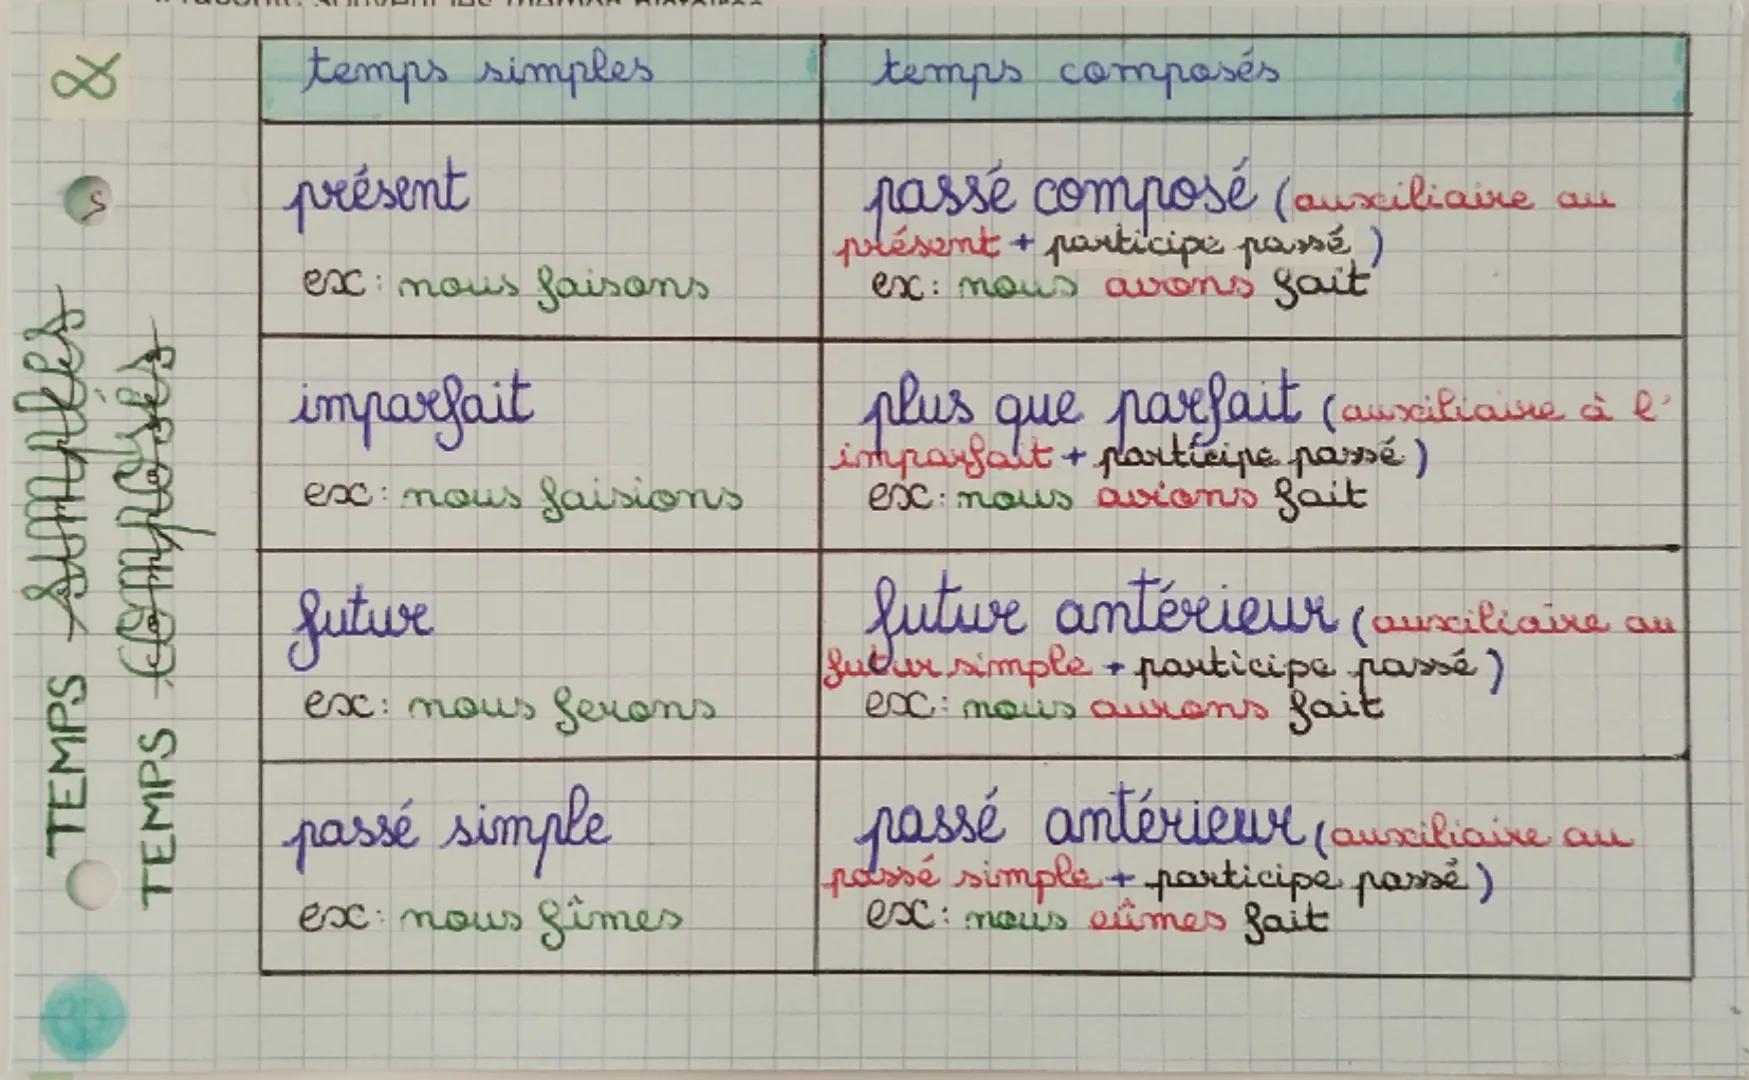 &
TEMPS SIMPLES
TEMPS COMPOSÉS
temps simples
temps composés
présent
ex: nous faisons
passé composé (auxiliaire au
présent + participe passé)
ex: nous avons fait
imparfait
ex: nous faisions
plus que parfait (auxiliaire à l'
imparfait + participe passé)
ex: nous avions fait
futur
ex: nous ferons
futur antérieur (auxiliaire au
futur simple + participe passé)
ex: nous aurons fait
passé simple
ex: nous fîmes
passé antérieur (auxiliaire au
passé simple + participe passé)
ex: nous eûmes fait